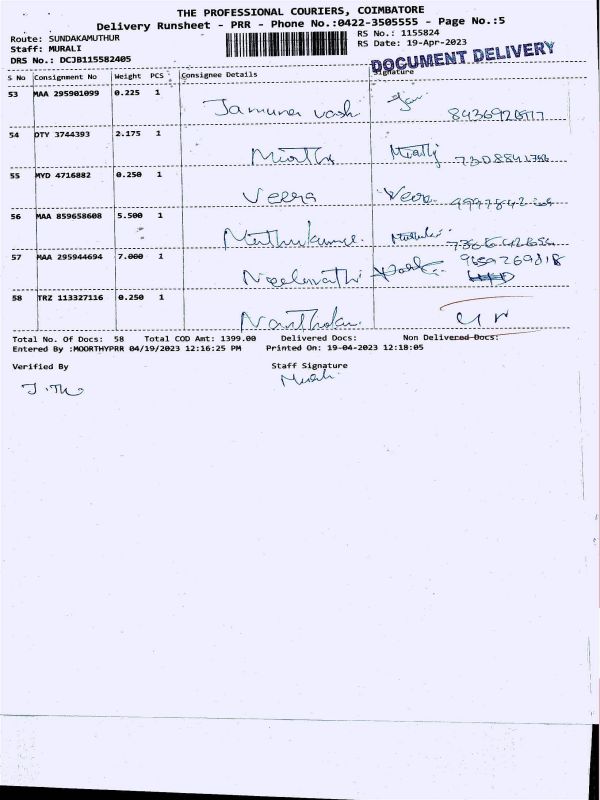 THE PROFESSIONAL COURIERS, COIMBATORE
Delivery Runsheet - PRR - Phone No.:0422-3505555 - Page No.:5
Route: SUNDAKAMUTHUR
RS No.: 1155824
Staff: MURALI
RS Date: 19-Apr-2023
DRS No.: DCJB115582405
DOCUMENT DELIVERY
S No Consignment No Weight PCS Consignee Details Signature
53 MAA 295901099 0.225 1 Jamuna
54 DTY 3744393 2.175 1
55 MYD 4716882 0.250 1 Veera Veera
56 MAA 859658608 5.500 1 Muthukumar
57 MAA 295944694 7.000 1 Neelavathi 9659269818
58 TRZ 113327116 0.250 1
Total No. Of Docs: 58 Total COD Amt: 1399.00 Delivered Docs: Non Delivered Docs:
Entered By :MOORTHYPRR 04/19/2023 12:16:25 PM Printed On: 19-04-2023 12:18:05
Verified By Staff Signature
Murali